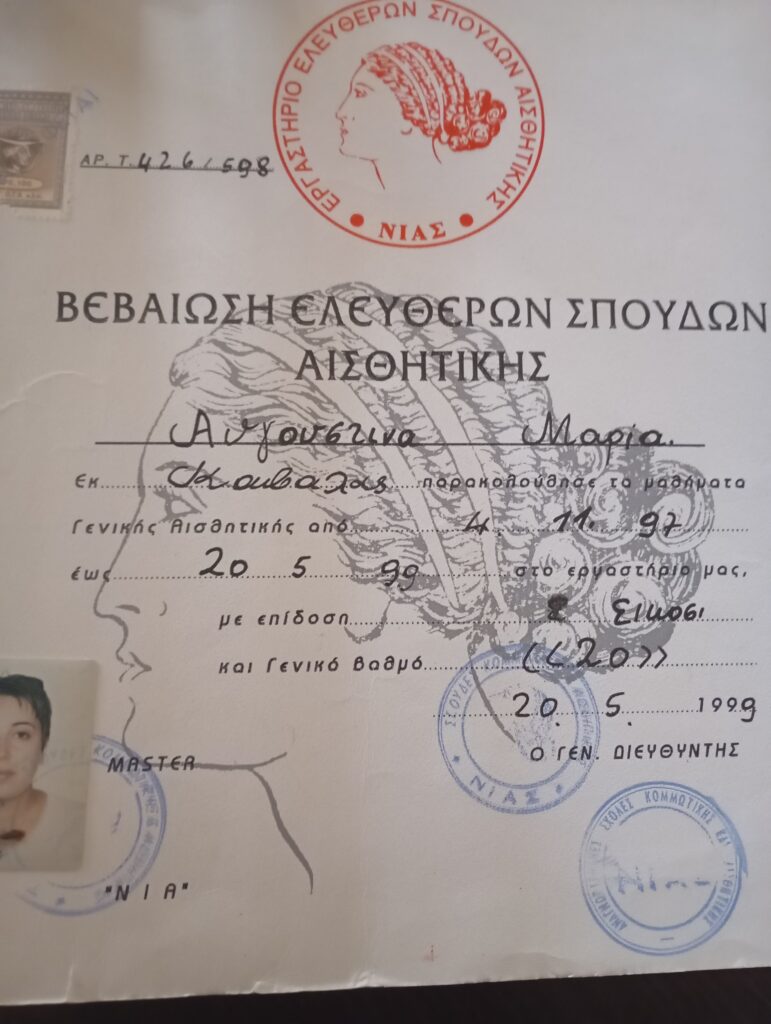 ΕΡΓΑΣΤΗΡΙΟ ΕΛΕΥΘΕΡΩΝ ΣΠΟΥΔΩΝ ΑΙΣΘΗΤΙΚΗΣ
ΝΙΑΣ
ΑΡ. Τ. 426/598
ΒΕΒΑΙΩΣΗ ΕΛΕΥΘΕΡΩΝ ΣΠΟΥΔΩΝ
ΑΙΣΘΗΤΙΚΗΣ
Αυγουστινα Μαρία.
Εκ Καβαλας παρακολούθησε τα μαθήματα
Γενικής Αισθητικής από 4 11. 97
έως 20 5 99 στο εργαστήριο μας,
με επίδοση Σικοσι
και Γενικό Βαθμό «20»
20. 5. 1999
Ο ΓΕΝ. ΔΙΕΥΘΥΝΤΗΣ
MASTER
ΝΙΑΣ
ΣΧΟΛΕΣ ΚΟΜΜΩΤΙΚΗΣ
"ΝΙΑ"